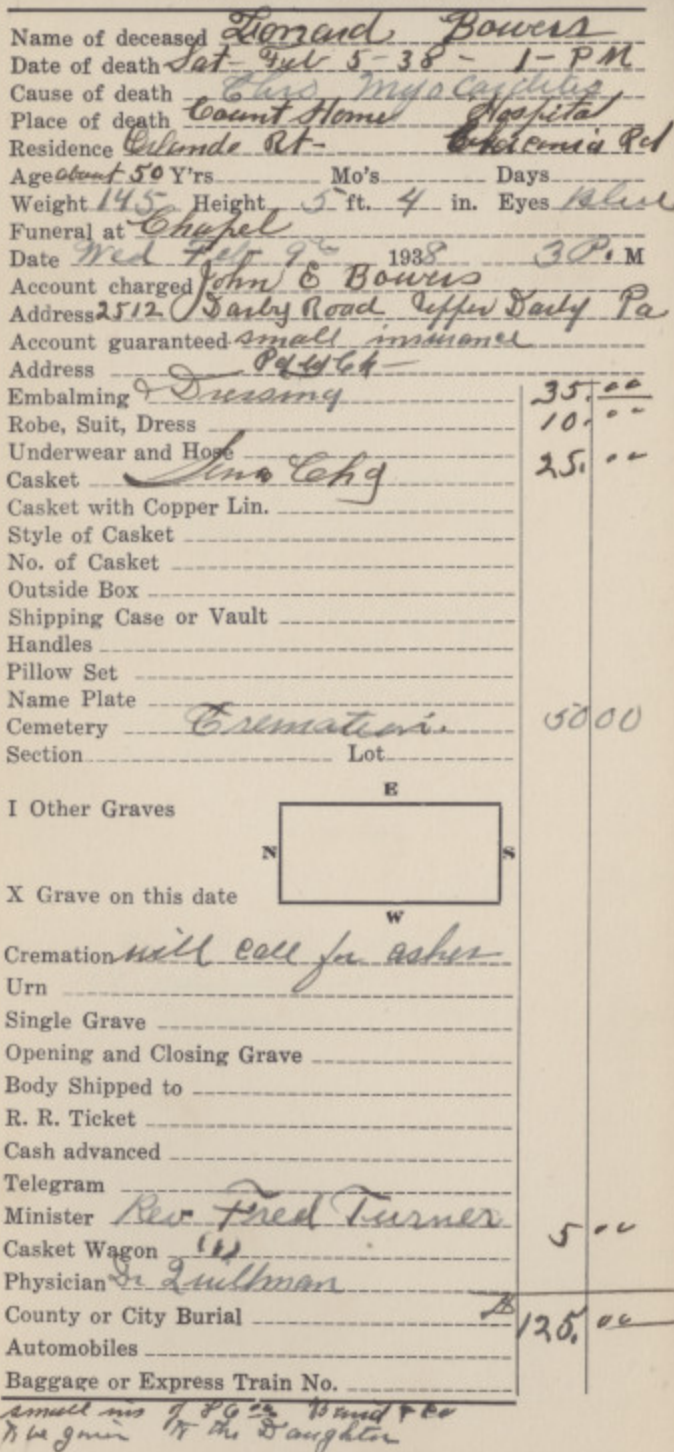 Name of deceased Bowers
Date of death Sat - Feb 5 - 38 - 1 - P M
Cause of death Chro Myocarditis
Place of death Count Home Hospital
Residence Rt - Rd
Age about 50 Y'rs Mo's Days
Weight 145 Height 5 ft. 4 in. Eyes Blue
Funeral at Chapel
Date Wed Feb 9th 1938 3 P. M
Account charged John E Bowers
Address 2512 Darby Road Upper Darby Pa
Account guaranteed small insurance
Address Pd by Ck -
Embalming & Dressing 35.00
Robe, Suit, Dress 10.00
Underwear and Hose
Casket Chg 25.00
Casket with Copper Lin.
Style of Casket
No. of Casket
Outside Box
Shipping Case or Vault
Handles
Pillow Set
Name Plate
Cemetery Cremation. 50 00
Section Lot
E
I Other Graves
N S
X Grave on this date
W
Cremation will call for ashes
Urn
Single Grave
Opening and Closing Grave
Body Shipped to
R. R. Ticket
Cash advanced
Telegram
Minister Rev Fred Turner 5 00
Casket Wagon (1)
Physician Dr Quillman
County or City Burial 125.00
Automobiles
Baggage or Express Train No.
small ins of
to be given to the Daughter